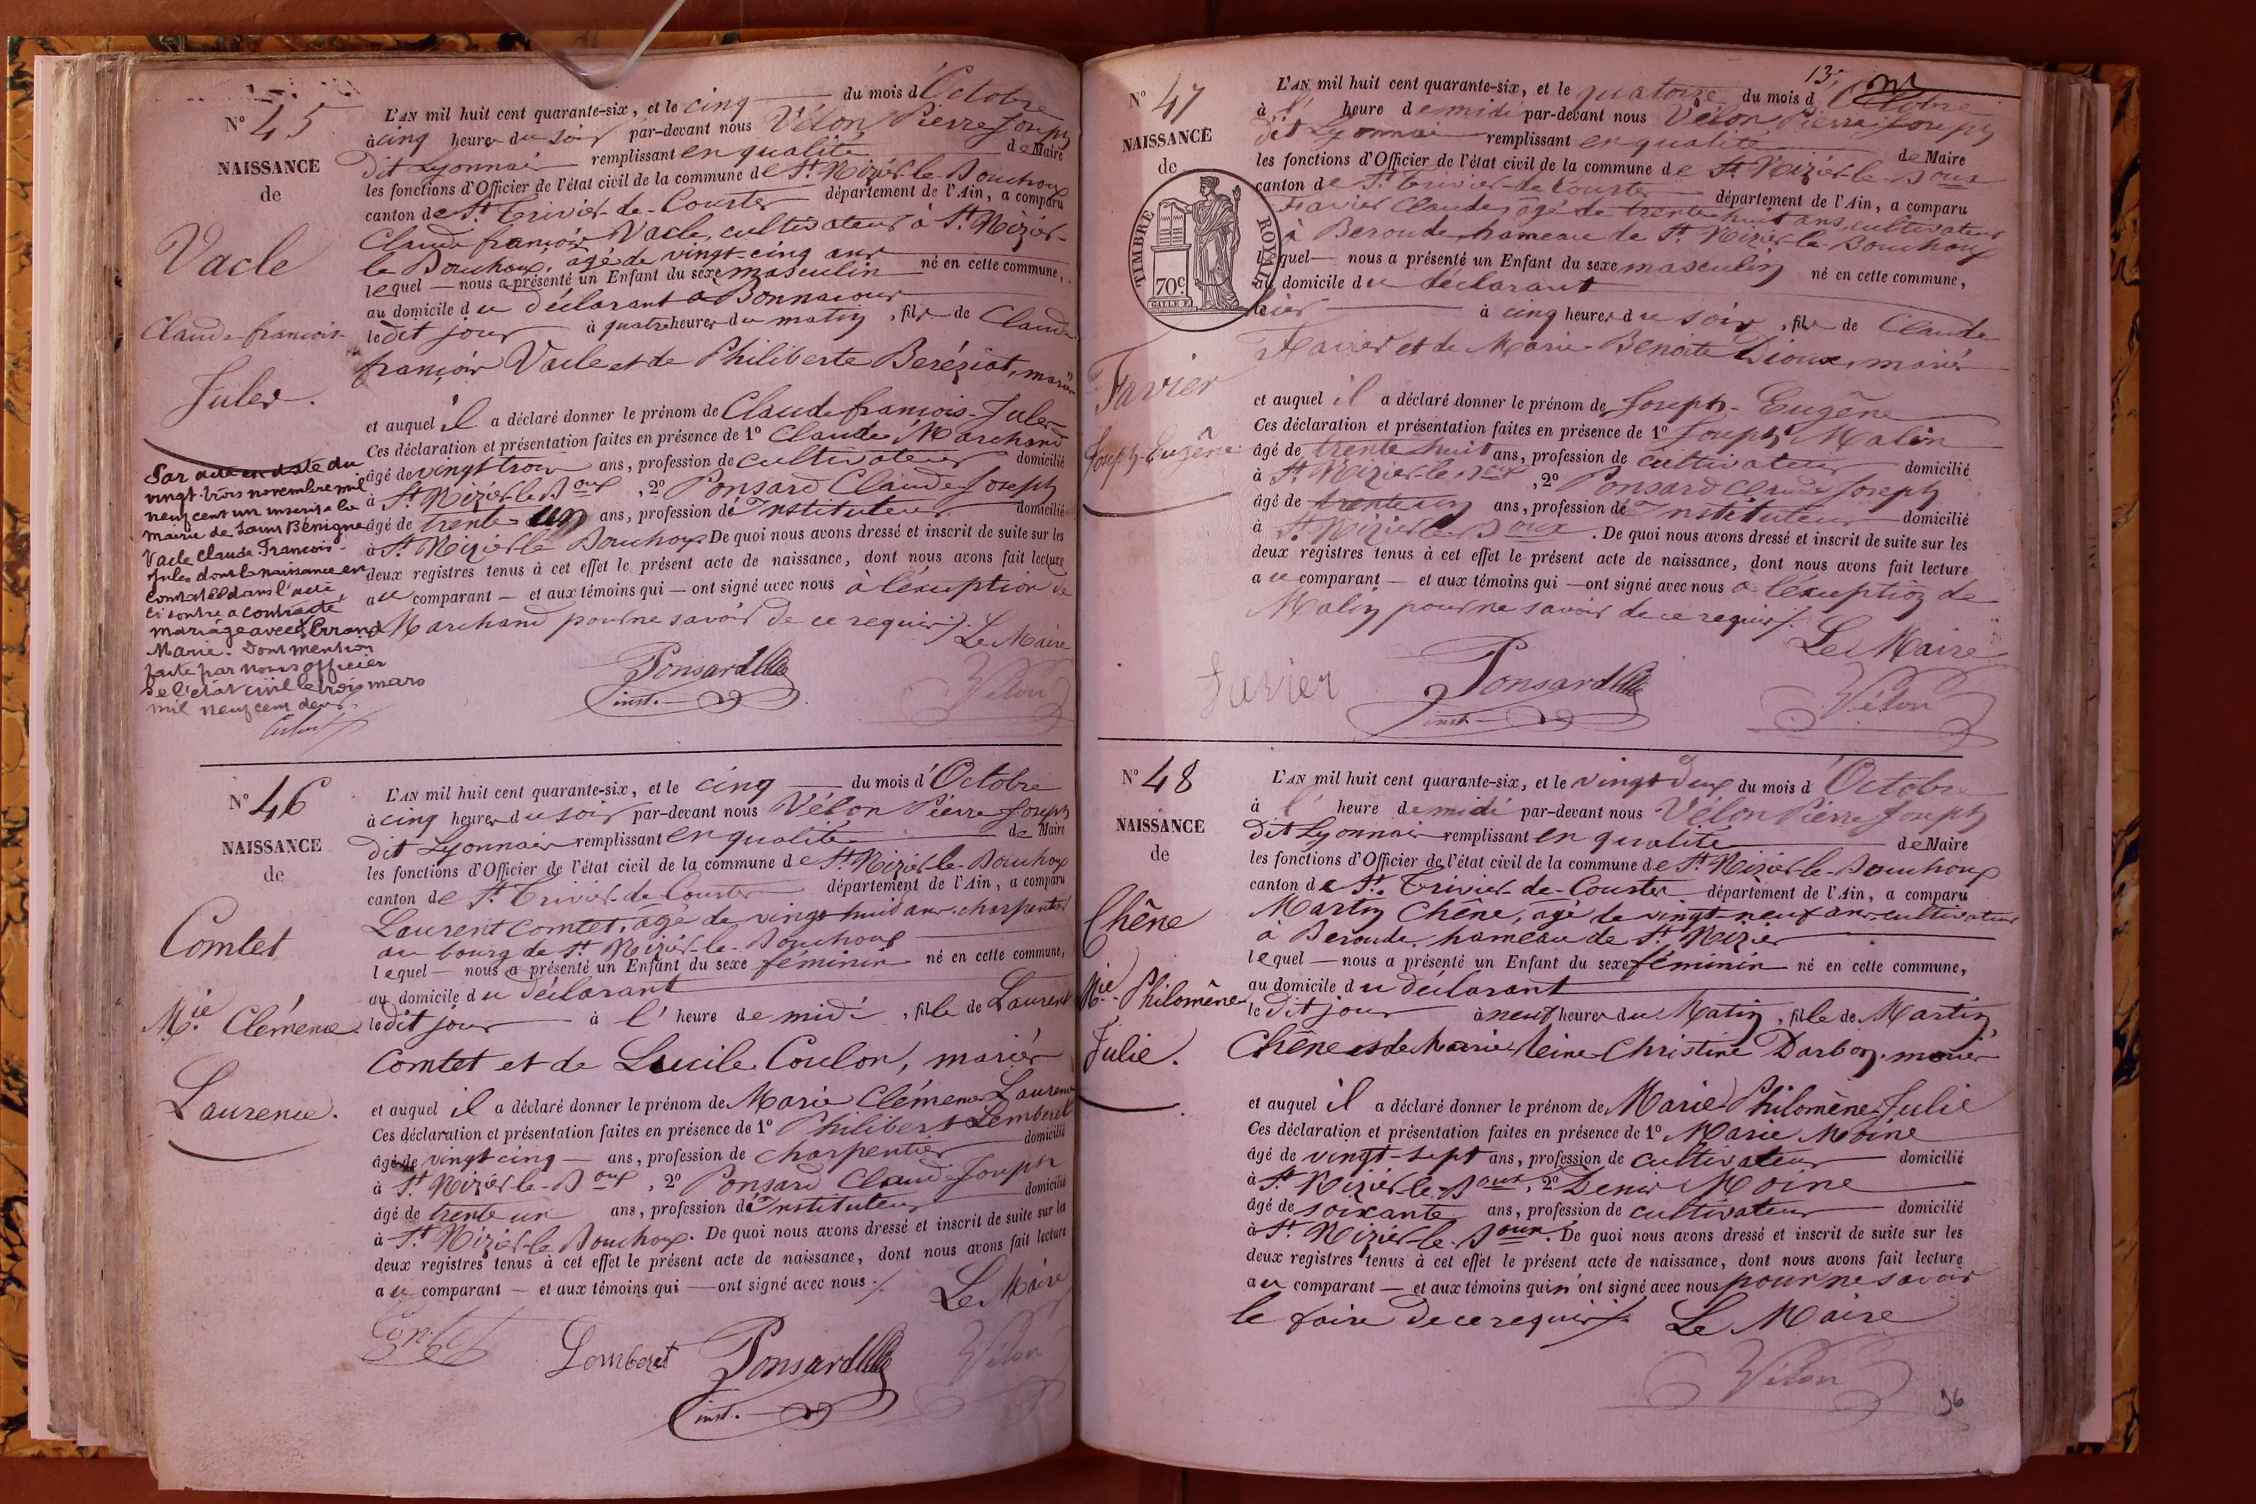 N° 45
NAISSANCE
de
Vacle
Claude françois
Jules.
Par acte en date du
vingt-trois novembre mil
neuf cent un inscrit à la
mairie de Saint Bénigne
Vacle Claude François-
Jules dont la naissance est
constatée dans l'acte
ci contre a contracté
mariage avec Perrand
Marie. Dont mention
faite par nous officier
de l'état civil le trois mars
mil neuf cent deux.
L'AN mil huit cent quarante-six, et le cinq du mois d'Octobre
à cinq heures du soir par-devant nous Vélon Pierre Joseph
dit Lyonnais remplissant en qualité de Maire
les fonctions d'Officier de l'état civil de la commune de St Nizier-le-Bouchoux
canton de St Trivier-de-Courtes département de l'Ain, a comparu
Claude françois Vacle, cultivateur à St Nizier-
le Bouchoux, âgé de vingt-cinq ans
lequel — nous a présenté un Enfant du sexe masculin né en cette commune,
au domicile du déclarant à Bonnacour
le dit jour à quatre heures du matin, fils de Claude
françois Vacle et de Philiberte Beréziat, mariés
et auquel il a déclaré donner le prénom de Claude françois-Jules
Ces déclaration et présentation faites en présence de 1° Claude Marchand
âgé de vingt trois ans, profession de cultivateur domicilié
à St Nizier-le-Boux, 2° Ponsard Claude Joseph
âgé de trente-un ans, profession d'Instituteur domicilié
à St Nizier-le Bouchoux De quoi nous avons dressé et inscrit de suite sur les
deux registres tenus à cet effet le présent acte de naissance, dont nous avons fait lecture
au comparant — et aux témoins qui — ont signé avec nous à l'éxception de
Marchand pour ne savoir de ce requis ⁒ Le Maire
Ponsard
inst.
Vélon
N° 46
NAISSANCE
de
Comtet
Mie Clémence
Laurence.
L'AN mil huit cent quarante-six, et le cinq du mois d'Octobre
à cinq heures du soir par-devant nous Vélon Pierre Joseph
dit Lyonnais remplissant en qualité de Maire
les fonctions d'Officier de l'état civil de la commune de St Nizier-le-Bouchoux
canton de St Trivier-de-Courtes département de l'Ain, a comparu
Laurent Comtet, âgé de vingt-huit ans, charpentier
au bourg de St Nizier-le-Bouchoux
lequel — nous a présenté un Enfant du sexe féminin né en cette commune,
au domicile du déclarant
le dit jour à l'heure de midi, fille de Laurent
Comtet et de Lucile Coulon, mariés
et auquel il a déclaré donner le prénom de Marie Clémence Laurence
Ces déclaration et présentation faites en présence de 1° Philibert Lemberet
âgé de vingt cinq — ans, profession de charpentier domicilié
à St Nizier-le-Boux, 2° Ponsard Claude Joseph
âgé de trente un ans, profession d'Instituteur domicilié
à St Nizier-le Bouchoux. De quoi nous avons dressé et inscrit de suite sur la
deux registres tenus à cet effet le présent acte de naissance, dont nous avons fait lecture
au comparant — et aux témoins qui — ont signé avec nous ⁒ Le Maire
Comtet
Lemberet
Ponsard
inst.
Vélon
13
N° 47
NAISSANCE
de
TIMBRE ROYAL
70c.
Favier
Joseph-Eugêne
L'AN mil huit cent quarante-six, et le quatorze du mois d'Octobre
à l' heure de midi par-devant nous Vélon Pierre Joseph
dit Lyonnais remplissant en qualité de Maire
les fonctions d'Officier de l'état civil de la commune de St Nizier-le-Boux
canton de St Trivier-de Courtes département de l'Ain, a comparu
Favier Claude, âgé de trente huit ans, cultivateur
à Beroude, hameau de St Nizier-le Bouchoux
lequel — nous a présenté un Enfant du sexe masculin né en cette commune,
au domicile du déclarant
hier à cinq heures du soir, fils de Claude
Favier et de Marie Benoite Sioux, mariés
et auquel il a déclaré donner le prénom de Joseph-Eugêne
Ces déclaration et présentation faites en présence de 1° Joseph Malin
âgé de trente huit ans, profession de cultivateur domicilié
à St Nizier-le-Boux, 2° Ponsard Claude Joseph
âgé de trente un ans, profession d'Instituteur domicilié
à St Nizier-le-Boux. De quoi nous avons dressé et inscrit de suite sur les
deux registres tenus à cet effet le présent acte de naissance, dont nous avons fait lecture
au comparant — et aux témoins qui — ont signé avec nous à l'éxception de
Malin pour ne savoir de ce requis ⁒
Le Maire
Favier
Ponsard
inst.
Vélon
N° 48
NAISSANCE
de
Chêne
Mie Philomêne
Julie.
L'AN mil huit cent quarante-six, et le vingt-deux du mois d'Octobre
à l' heure de midi par-devant nous Vélon Pierre Joseph
dit Lyonnais remplissant en qualité de Maire
les fonctions d'Officier de l'état civil de la commune de St Nizier-le-Bouchoux
canton de St Trivier-de-Courtes département de l'Ain, a comparu
Martin Chêne, âgé de vingt-neuf ans, cultivateur
à Beroude, hameau de St Nizier
lequel — nous a présenté un Enfant du sexe féminin né en cette commune,
au domicile du déclarant
le dit jour à neuf heures du Matin, fille de Martin
Chêne et de Marie Reine Christine Darbon, mariés
et auquel il a déclaré donner le prénom de Marie Philomène Julie
Ces déclaration et présentation faites en présence de 1° Marie Moine
âgé de vingt-sept ans, profession de cultivateur domicilié
à St Nizier-le-Boux, 2° Denis Moine
âgé de soixante ans, profession de cultivateur domicilié
à St Nizier-le-Boux. De quoi nous avons dressé et inscrit de suite sur les
deux registres tenus à cet effet le présent acte de naissance, dont nous avons fait lecture
au comparant — et aux témoins qui n'ont signé avec nous pour ne savoir
le faire de ce requis ⁒ Le Maire
Vélon
96